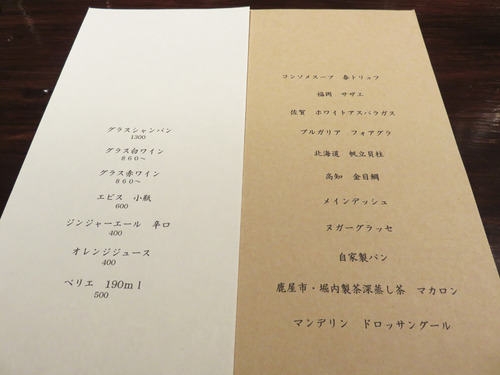 グラスシャンパン
1300
グラス白ワイン
860～
グラス赤ワイン
860～
エビス　小瓶
600
ジンジャーエール　辛口
400
オレンジジュース
400
ペリエ　190ml
500
コンソメスープ　春トリュフ
福岡　サザエ
佐賀　ホワイトアスパラガス
ブルガリア　フォアグラ
北海道　帆立貝柱
高知　金目鯛
メインデッシュ
ヌガーグラッセ
自家製パン
鹿屋市・堀内製茶深蒸し茶　マカロン
マンデリン　ドロッサングール